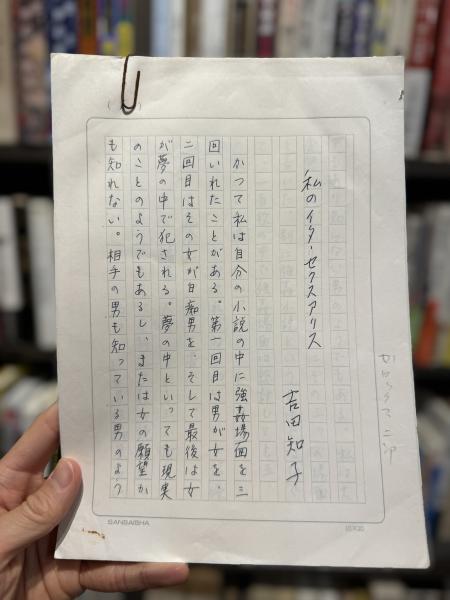 私のイタ・セクスアリス
吉田知子
かつて私は自分の小説の中に強姦場面を三
回いれたことがある。第一回目は男が女を、
二回目はその女が白痴男を、そして最後は女
が夢の中で犯される。夢の中といっても現実
のことのようでもあるし、または女の願望か
も知れない。相手の男も知っている男のよう
SANSAISHA